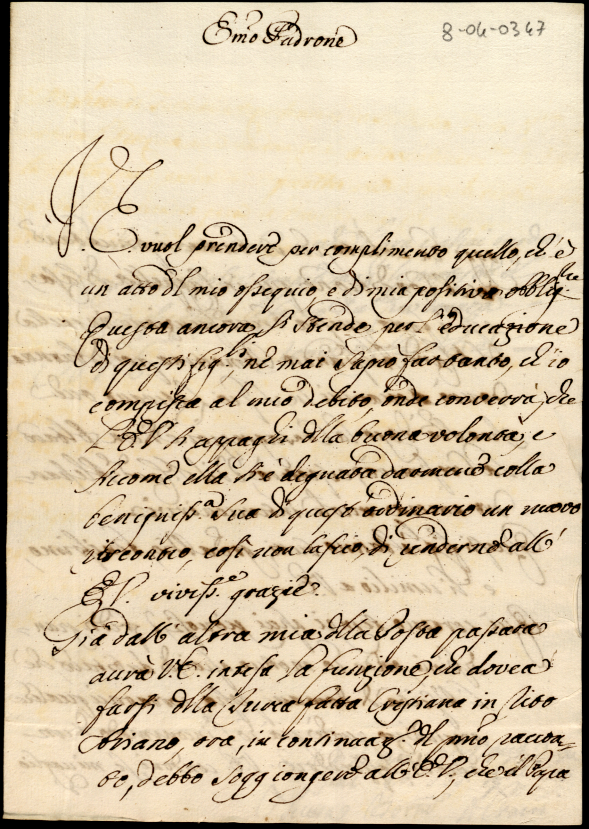 Emo Padrone
8-04-0347
V. E. vuol prendere per complimento quello, ch'è
un atto del mio ossequio e di mia positiva obblig.
Questa ancora si stende per l'educazione
di questi Sig.ri nè mai saprò far tanto, ch'io
compisca al mio debito, onde converrà, che
l'E.V. si appaghi della buona volontà, e
siccome ella si è degnata darmene colla
benigniss.a Sua di questo ordinario un nuovo
riscontro, così non lascio, di renderne all'
E.V. viviss.e grazie.
Già dall'altra mia della Posta passata
aurà V.E. intesa la funzione, che dovea
farsi della Turca fatta Cristiana in
ora, in continuaz.e del mio raccon-
to, debbo soggiongere all'E.V., che il Papa